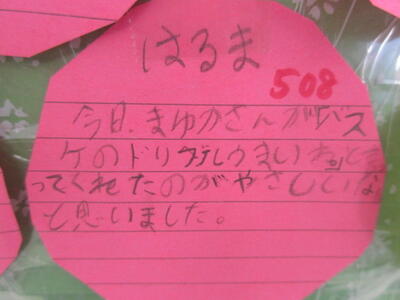 はるま
508
今日、まゆかさんがバス
ケのドリブルうまいねとい
ってくれたのがやさしいな
と思いました。